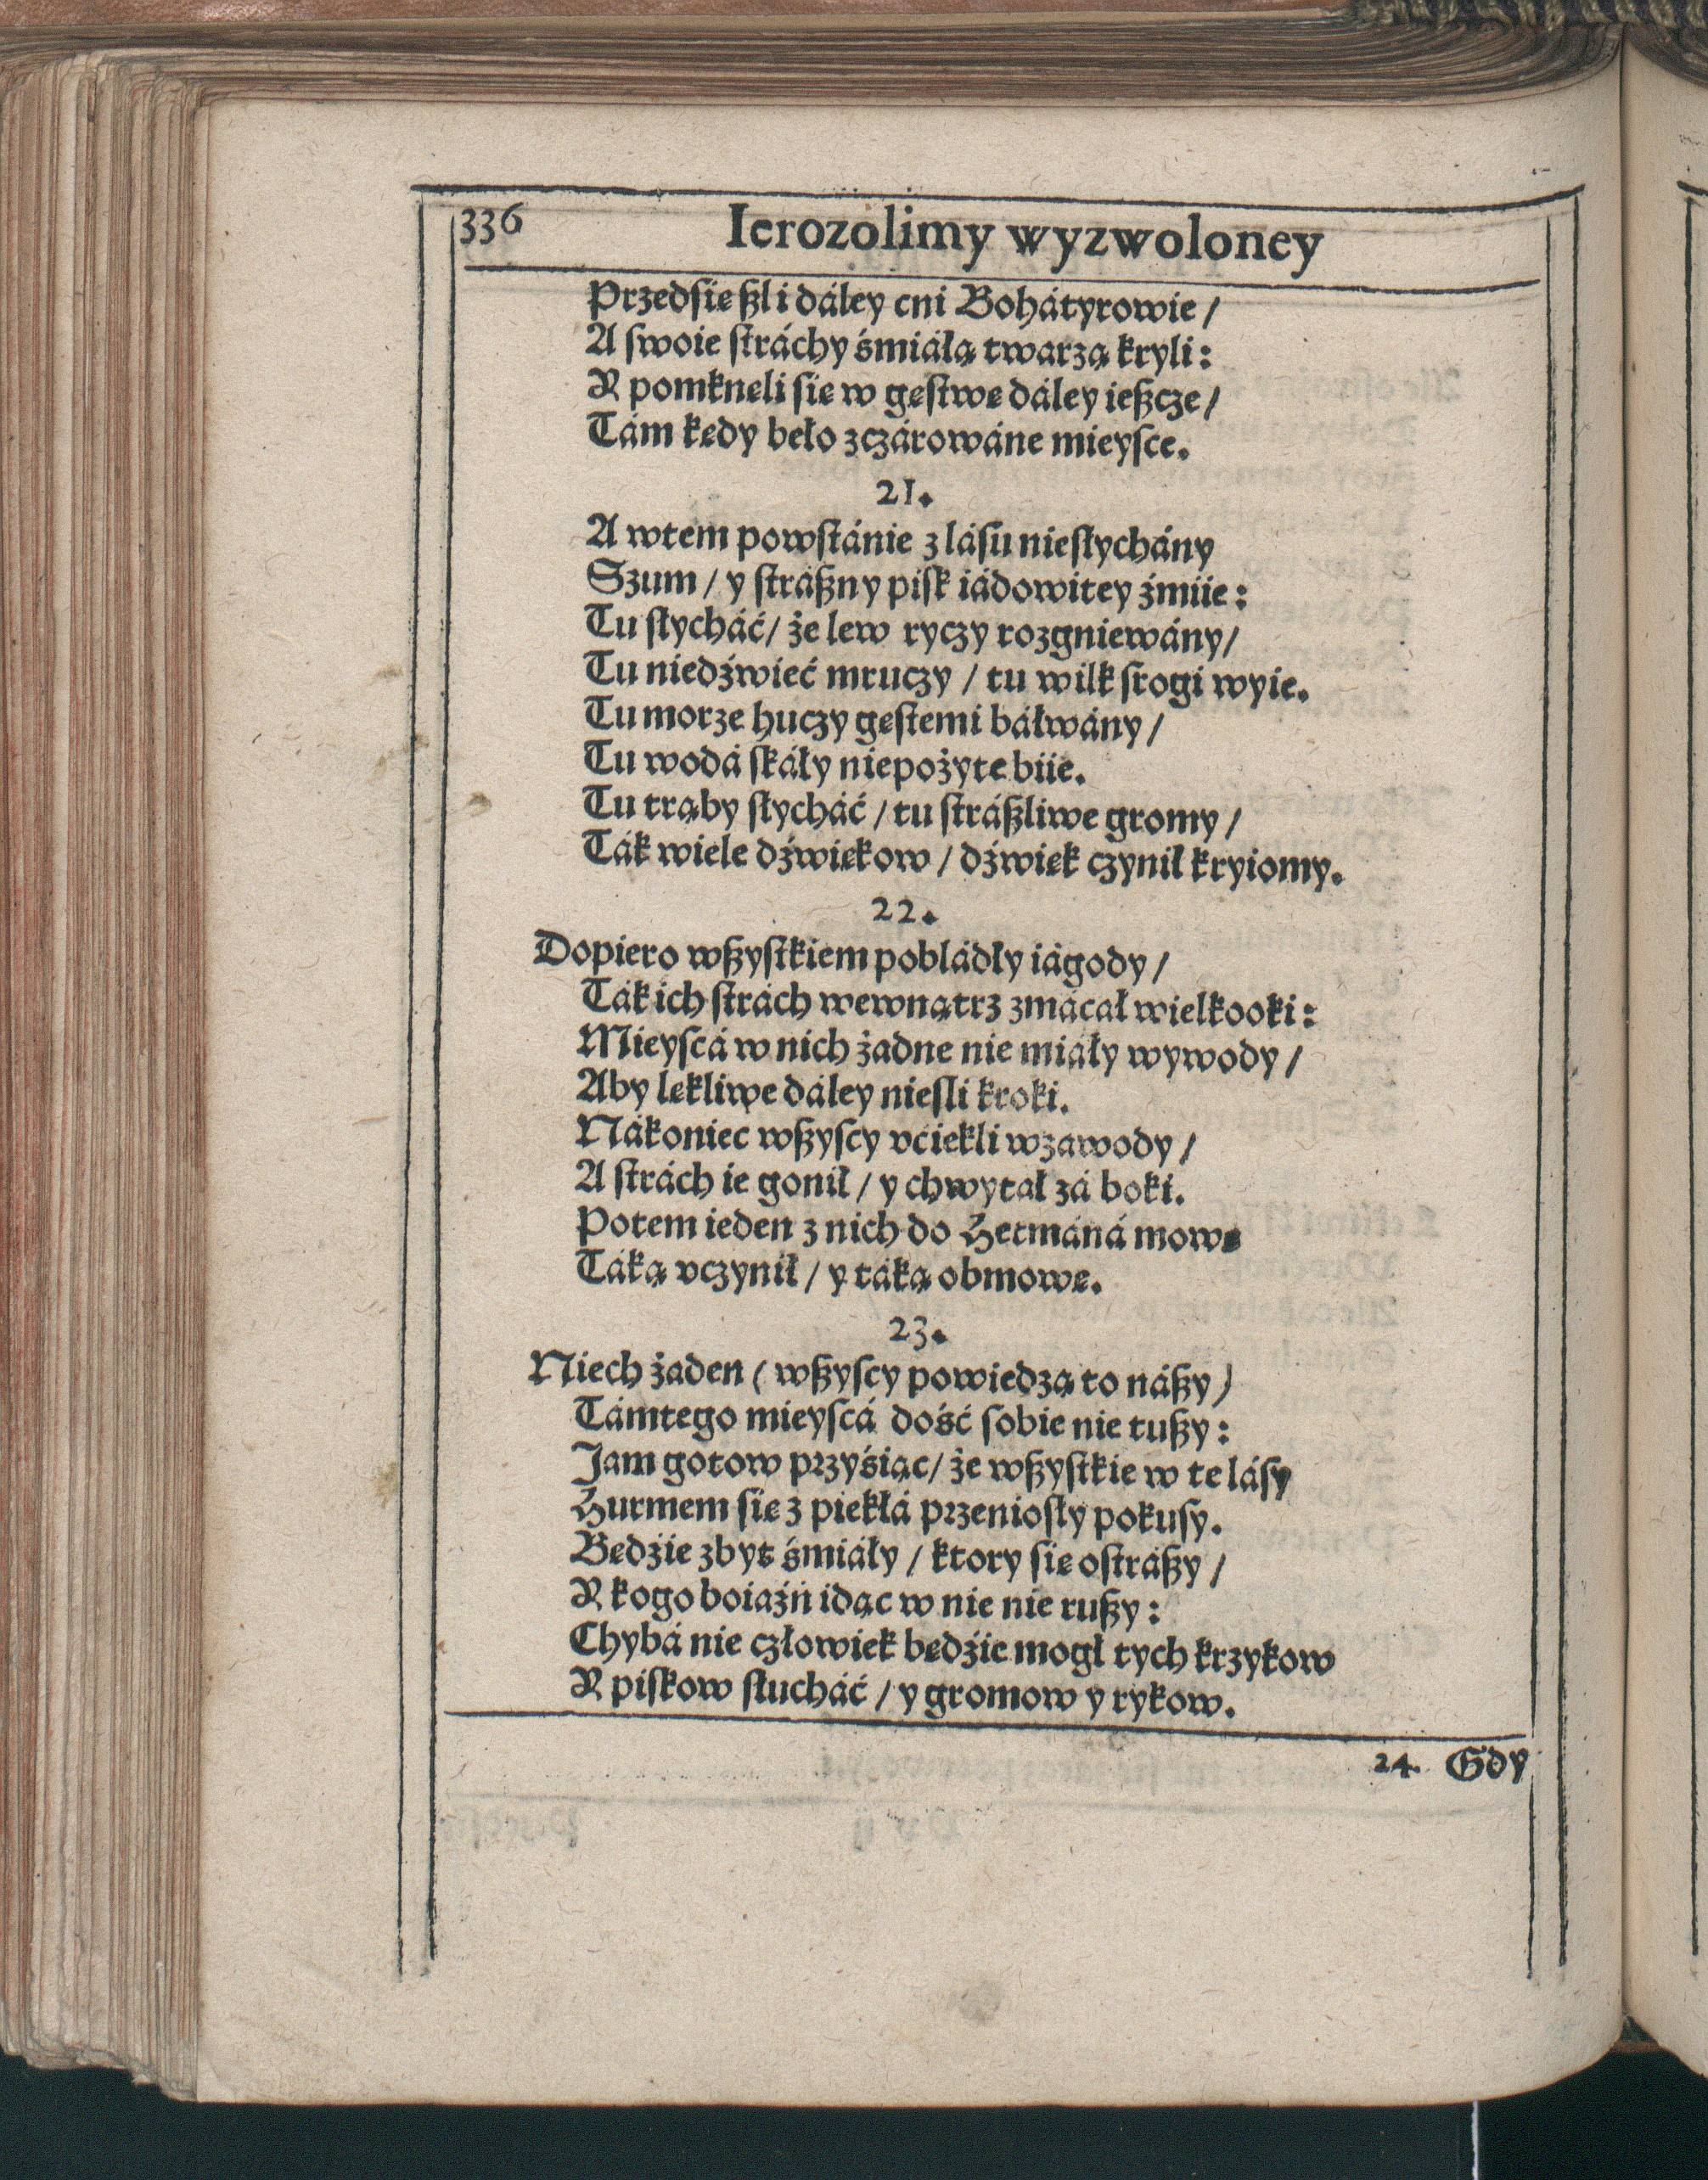 336 Ierozolimy wyzwoloney
Przedsię ßli dáley cni Bohátyrowie /
A swoie stráchy śmiáłą twarzą kryli:
Y pomknęli się w gęstwę dáley ießcze /
Tám kędy beło zczárowáne mieysce.
21.
A wtem powstánie z lásu niesłychány
Szum / y stráßny pisk iádowitey źmiie:
Tu słycháć / że lew ryczy rozgniewány /
Tu niedźwieć mruczy / tu wilk srogi wyie.
Tu morze huczy gęstemi báłwány /
Tu wodá skáły niepożyte biie.
Tu trąby słycháć / tu stráßliwe gromy /
Ták wiele dźwiękow / dźwięk czynił kryiomy.
22.
Dopiero wßystkiem pobládły iágody /
Ták ich strách wewnątrz zmácał wielkooki:
Mieyscá w nich żadne nie miáły wywody /
Aby lękliwe dáley nieśli kroki.
Nákoniec wßyscy vciekli wzawody /
A strách ie gonił / y chwytał zá boki.
Potem ieden z nich do Hetmáná mowę
Táką vczynił / y táką obmowę.
23.
Niech żaden (wßyscy powiedzą to náßy)
Támtego mieyscá dość sobie nie tußy:
Jam gotow przyśiąc / że wßystkie w te lásy
Hurmem się z piekłá przeniosły pokusy.
Będźie zbyt śmiáły / ktory się ostráßy /
Y kogo boiaźń idąc w nie nie rußy:
Chybá nie człowiek będźie mogł tych krzykow
Y piskow słucháć / y gromow y rykow.
24. Gdy